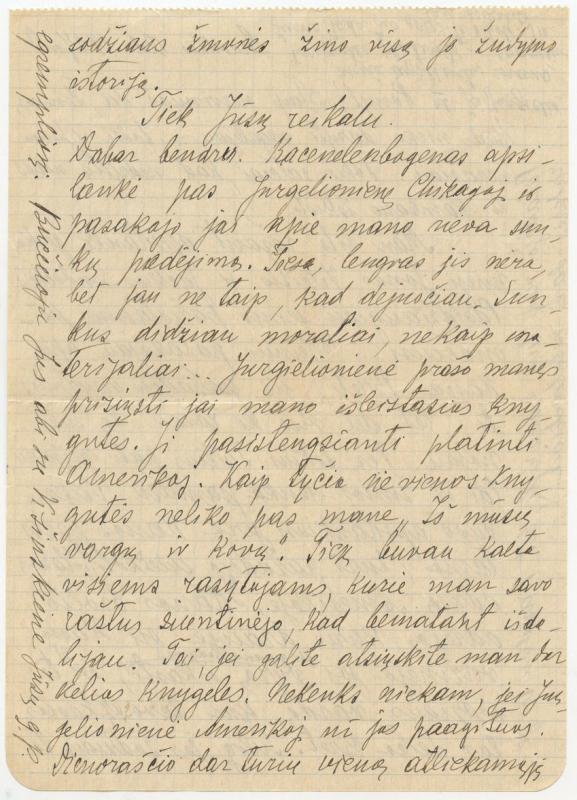 sodžiaus žmonės žino visą jo žudymo
istoriją.
Tiek Jūsų reikalu.
Dabar bendro. Kacenelenbogenas apsi-
lankė pas Jurgelionienę Chikagoj ir
pasakojo jai apie mano neva sun-
kų padėjimą. Tiesa, lengvas jis nėra,
bet jau ne taip, kad dejuočiau. Sun-
kus didžiau moraliai, nekaip ma-
terijaliai... Jurgielionienė prašo manęs
prisiųsti jai mano išleistąsias kny-
gutes. Ji pasistengsianti platinti
Amerikoj. Kaip tyčia nevienos kny-
gutės neliko pas mane „Iš mūsų
vargų ir kovų“. Tiek buvau kalta
visiems rašytojams, kurie man savo
raštus siuntinėjo, kad bematant išda-
lijau. Tai, jei galite atsiųskite man dar
kelias knygeles. Nekenks niekam, jei Jur-
gelionienė Amerikoj ni jas paagituos.
Dienoraščio dar turiu vieną atliekamąjį
egzempliorį. Bučiuoja Jus abi su Višinskiene Jūsų g. p.